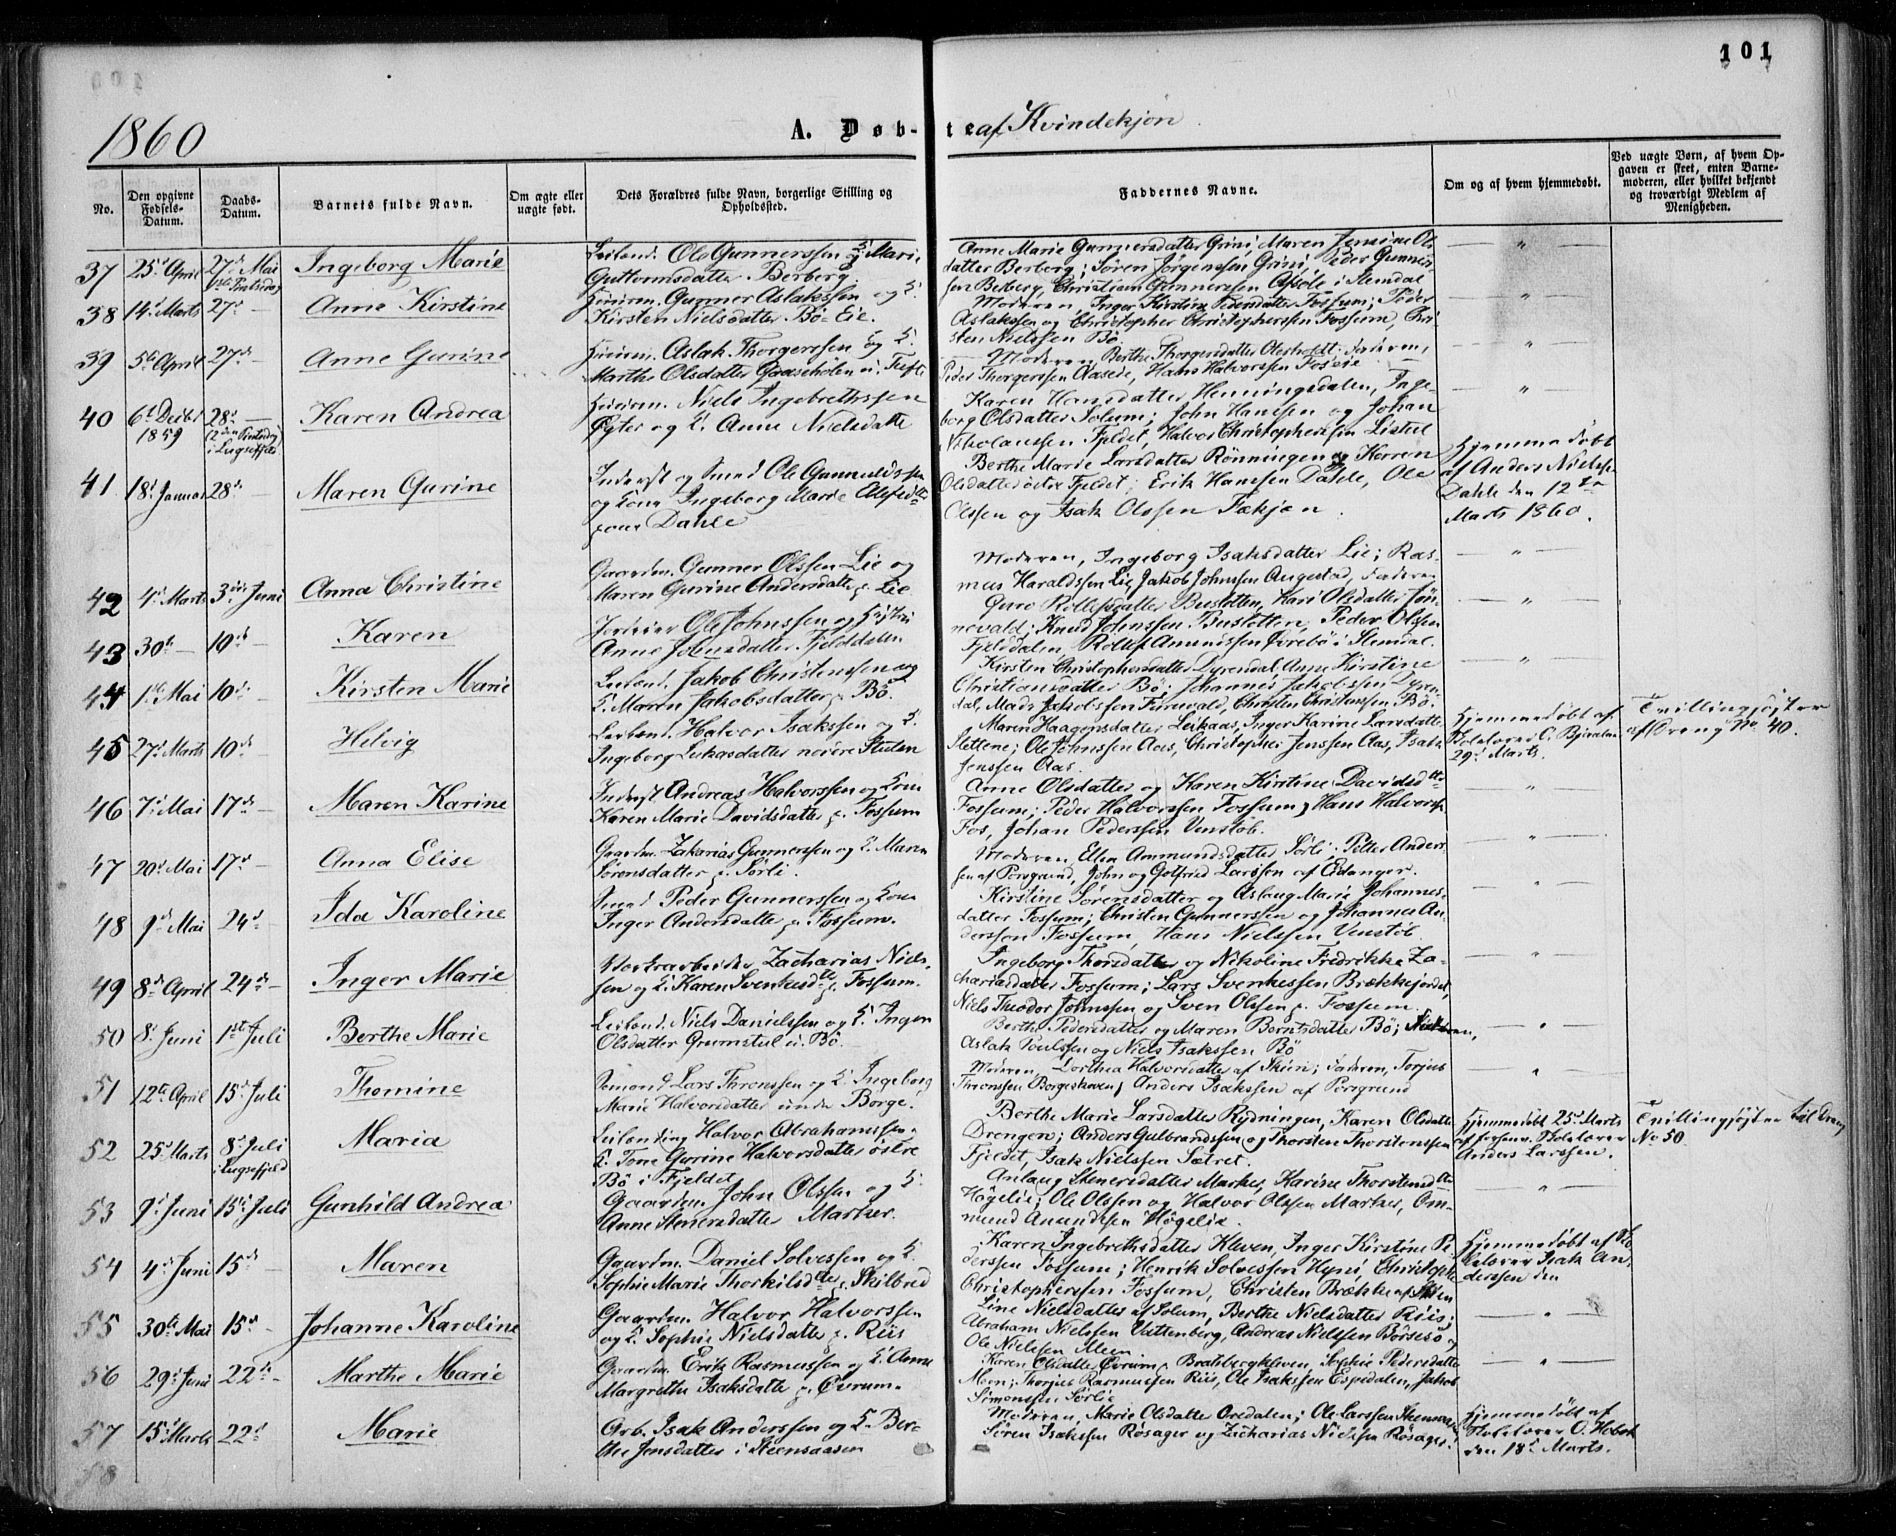 101
1860
A. Døb-te af Kvindekjøn.
No.
Den opgivne Fødsels-Datum.
Daabs-Datum.
Barnets fulde Navn.
Om ægte eller uægte født.
Dets Forældres fulde Navn, borgerlige Stilling og Opholdssted.
Faddernes Navne.
Om og af hvem hjemmedøbt.
Ved uægte Børn, af hvem Opgaven er skeet, enten Barnemoderen, eller hvilket bekjendt og troværdigt Medlem af Menigheden.
37 25d April 27de Mai Ingeborg Marie
Leiland. Ole Gunnerssen & Marie
Guttormsdatter Berberg.
Anne Marie Gunnersdatter Grini Maren Jensine Ols
datter Berberg; Søren Jørgenssen Grini, Peder Gunners
sen Berberg, Christian Gunnerssen i Slemdal
38 14d Marts 27d — Anne Kirstine
Gunner Aslakssen og K.
Kirsten Nielsdatter Bö Eie.
Moderen, Inger Kirstine Pedersdatter Fossum; Peder
Aslakssen og Christopher Christopherssen Fossum, Chri
sten Nielssen Bö
39 5te April 27d — Anne Gurine
Aslak Thorgerssen og K.
Marthe Olsdatter Gaaseholen u. Tufte
Moderen Berthe Thorgersdatter Faderen,
Peder Thorgerssen Aasede, Hans Halvorssen Foseie
40 6t Decbr 1859 28d — Karen Andrea
Niels Ingebrethssen
og K. Anne Nielsdatt
Karen Hansdatter Henningsdalen, Inge-
borg Olsdatter Solum; John Hanssen og Johan
Nikolaussen Fjeldet, Halvor Christopherssen Listul
41 18d Januar 28d — Maren Gurine
Inderst og Smed Ole Gunnuldssen
og Kone Ingeborg Marie
Dahle
Berthe Marie Larsdatter Rønningen og Karen
Olsdatter østre Fjeldet; Erik Hanssen Dahle, Ole
Olssen og Isak Olssen Fækjan.
Hjemmedøbt
af Anders Nielssen
Dahle den 12te
Marts 1860.
42 4d Marts 3die Juni Anna Christine
Gaardm. Gunner Olssen Lie og
Maren Gurine Andersdatter p. Lie.
Moderen, Ingeborg Isaksdatter Lie; Ras-
mus Haraldssen Lie, Jakob Johnssen Augestad, Faderen
43 30te — 10de — Karen
Ole Johnssen og Hustru
Anne Jensdatter Fjelddalen
Guro Rollefsdatter Buslotten, Kari Olsdatter Jøn-
nevald; Knud Johnssen Buslotten, Peder Olssen
Fjelddalen, Rollef Amundssen Øvrebö i Slemdal.
44 1ste Mai 10de — Kirsten Marie
Leiland. Jakob Christenssen og
K. Maren Jakobsdatter p. Bö
Kirsten Christophersdatter Dyrendal, Anne Kirstine
Christiansdatter Bö; Johannes Jakobssen Dyren-
dal, Mads Jakobssen Furuvald, Christen Christenssen Bö.
45 27d Marts 10de — Helvig
Leiland. Halvor Isakssen og K.
Ingeborg Lukasdatter nordre Slutan
Maren Haagensdatter Leikaas, Inger Karine Larsdatte
Slettene; Ole Johnssen Aas, Christopher Jenssen Aas, Isak
Jenssen Aas.
Hjemmedøbt af
Skolelærer C.
29d Marts.
Tvillingsøster
af Dreng No 40.
46 7d Mai 17de — Maren Karine
Inderst Andreas Halvorssen og Kone
Karen Marie Davidsdatter p. Fossum
Anne Olsdatter og Karen Kirstine Davidsdtte
Fossum; Peder Halvorssen Fossum, Hans Halvorssen
Fos, Johan Pederssen Venstöb.
47 20d Mai 17d — Anna Elise
Gaardm. Zakarias Gunnerssen og K. Maren
Sörensdatter p. Sörli.
Moderen, Ellen Ammundsdatter Sörli; Petter Anders
sen af Porsgrund, John og Gotfried Larssen af Eidanger.
48 9d Mai 24d — Ida Karoline
Smed Peder Gunnerssen og Kone
Inger Andersdatte p. Fossum.
Kirstine Sørensdatter og Aslaug Marie Johannes-
datter Fossum; Christen Gunnerssen og Johannes An
derssen Fossum, Hans Nielssen Venstöb
49 8de April 24de — Inger Marie
Værksarbeider Zacharias Niels-
sen og K. Karen Svenkesdtte p. Fossum.
Ingeborg Thorsdatter og Nikoline Fredrikke Za-
chariasdatter Fossum; Lars Svenkessen Brækkejordet,
Niels Theodor Johnssen og Sven Olssen p. Fossum.
50 8d Juni 1ste Juli Berthe Marie
Leiland. Niels Danielssen og K. Inger
Olsdatter Grumstul u. Bö.
Berthe Pedersdatter og Maren Berntsdatter Bö;
Aslak Poulssen og Niels Isakssen Bö
51 12te April 15d Juli Thomine
Sömand Lars Thronssen og K. Ingeborg
Marie Halvorsdatter under Borge.
Moderen, Dorthea Halvorsdatter af Skien; Faderen, Torjus
Thronssen Borgeskoven, Anders Isakssen af Porsgrund
52 25d Marts 8d Juli Lugsefjeld Maria
Leilænding Halvor Abrahamssen
K. Tone Gurine Halvorsdatter østre
Bö i Fjeldet
Berthe Marie Larsdatter Rydningen, Karen Olsdatte
Drengen; Anders Gulbrandssen og Thorsten Thorstenssen
Fjeldet, Isak Nielssen Sætret.
Hjemmedøbt 25d Marts
af Skolelærer
Anders Larssen.
Tvillingsøster til Dreng
No 50.
53 9d Juni 15de Juli Gunhild Andrea
Gaardm. John Olssen og K.
Anne Stenersdatter Marker.
Anlaug Stenersdatter Marker, Karine Thorstensdtte
Högelie; Ole Olssen og Halvor Olssen Marker, Om-
mund Amundssen Högelie.
54 4de Juni 15de — Maren
Gaardm. Daniel Solvessen og K.
Sophie Marie Thorkilsdtte p. Skilbred
Karen Ingebrethsdatter Kleven, Inger Kirstine Pe
derssen Fossum; Henrik Solvessen Hyni, Christopher
Christopherssen Fossum, Christen Brække af Skien
Hjemmedøbt af Sko
lelærer Isak An-
derssen den
55 30te Mai 15d — Johanne Karoline
Gaardm. Halvor Halvorssen
og K. Sophie Nielsdatter p. Riis
Line Nielsdatter af Solum, Berthe Nielsdatter Riis;
Abraham Nielssen Vattenberg, Andreas Nielssen Börsesö og
Ole Nielssen Meen
56 29d Juni 22de — Marthe Marie
Gaardm. Erik Rasmussen og K. Anne
Margrethe Isaksdatter p. Øvrum.
Karen Olsdatte Øvrum, Bratsbergkleven, Sophie Pedersdatte
Meen; Thorjus Rasmussen Riis, Ole Isakssen Espedalen, Jakob
Simonssen Sörlie
57 15d Marts 22d — Marie
Arb. Isak Anderssen og K. Ber-
the Jensdatter i Steensaasen
Moderen, Marie Olsdatte Oredalen; Ole Larssen
Sören Isakssen Røsager og Zacharias Nielssen Røsager.
Hjemmedøbt af
Skolelærer O.
den 18d Marts.
58